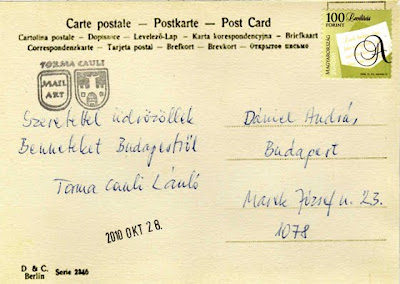 Carte postale – Postkarte – Post Card
Cartolina postale – Dopisnice – Levelező-Lap – Karta korespondencyjna – Briefkaart
Correspondenzkarte – Tarjeta postal – Brefkort – Brevkort – Открытое письмо
100
FORINT
MAGYARORSZÁG
TORMA CAULI
MAIL
ART
Szeretettel üdvözöllek
Benneteket Budapestről
Torma Cauli László
2010 OKT 28.
Dániel András
Budapest
Marek József u. 23.
1078
D & C.
Berlin
Serie 2346